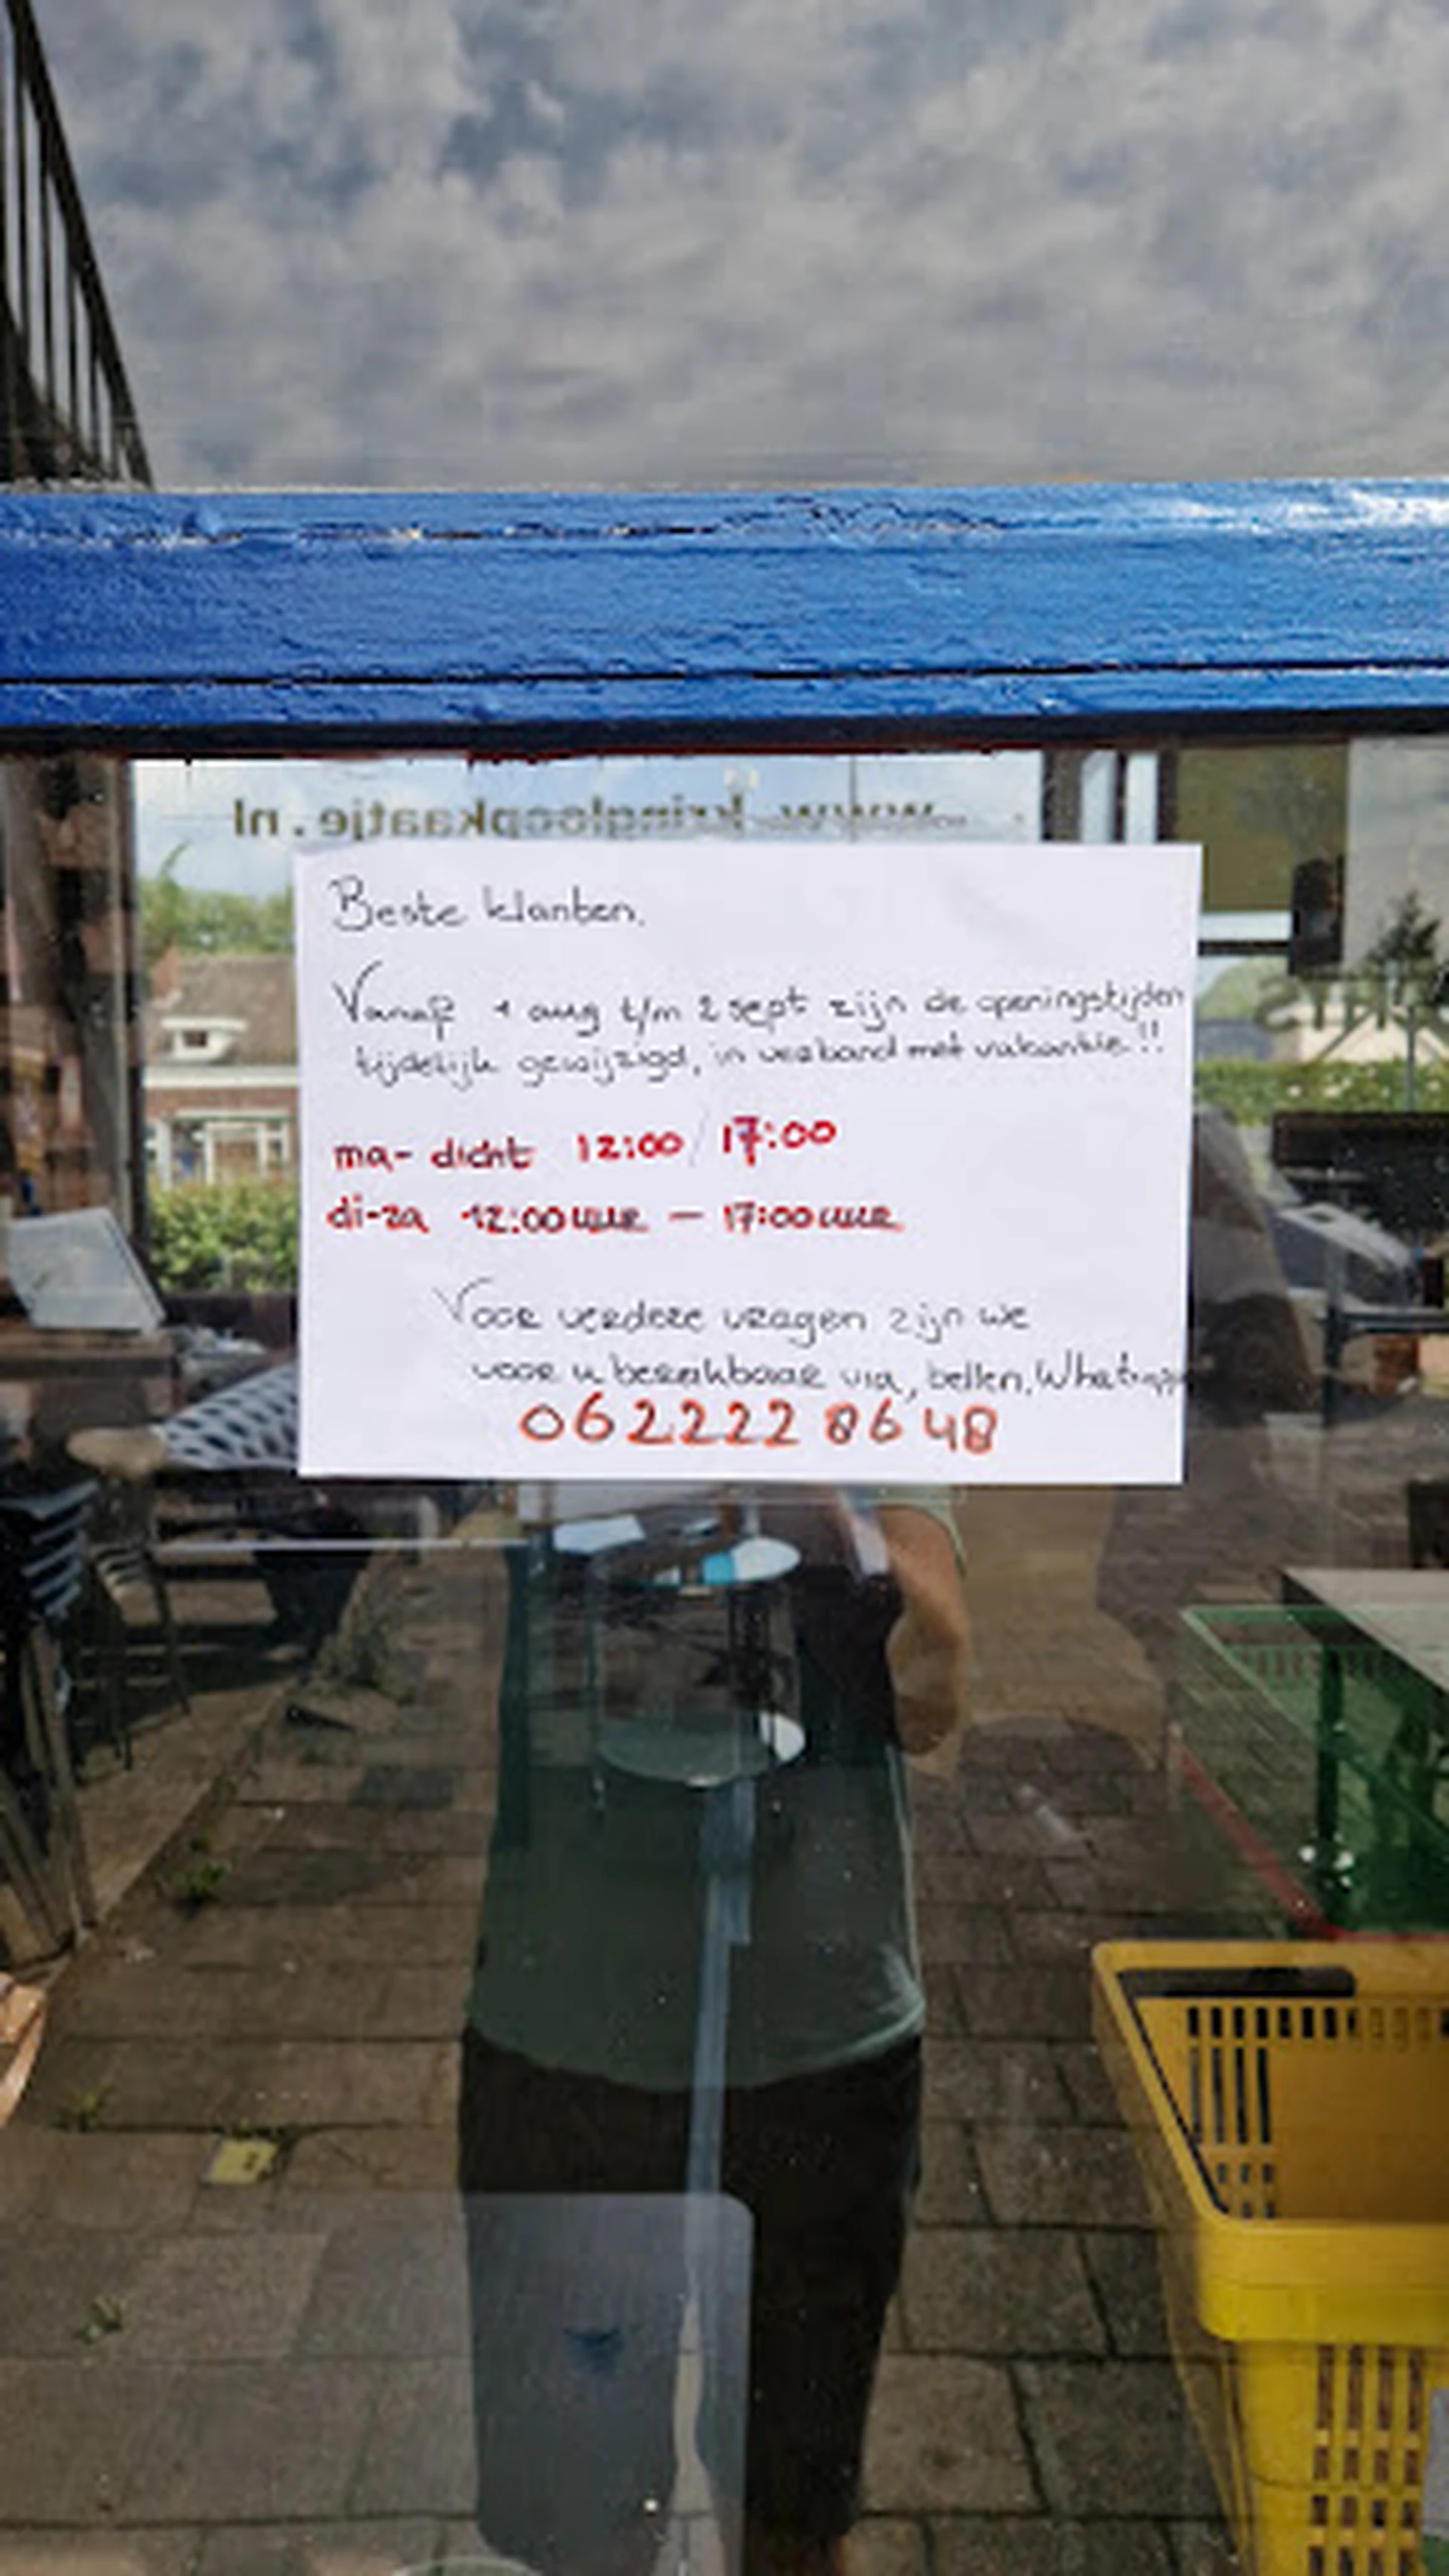 www.kringloopkaatje.nl
Beste klanten.
Vanaf 1 aug t/m 2 sept zijn de openingstijden
tijdelijk gewijzigd, in verband met vakantie!!
ma- dicht 12:00 / 17:00
di-za 12:00 uur — 17:00 uur
Voor verdere vragen zijn we
voor u bereikbaar via, bellen, Whatsapp
062222 86 48